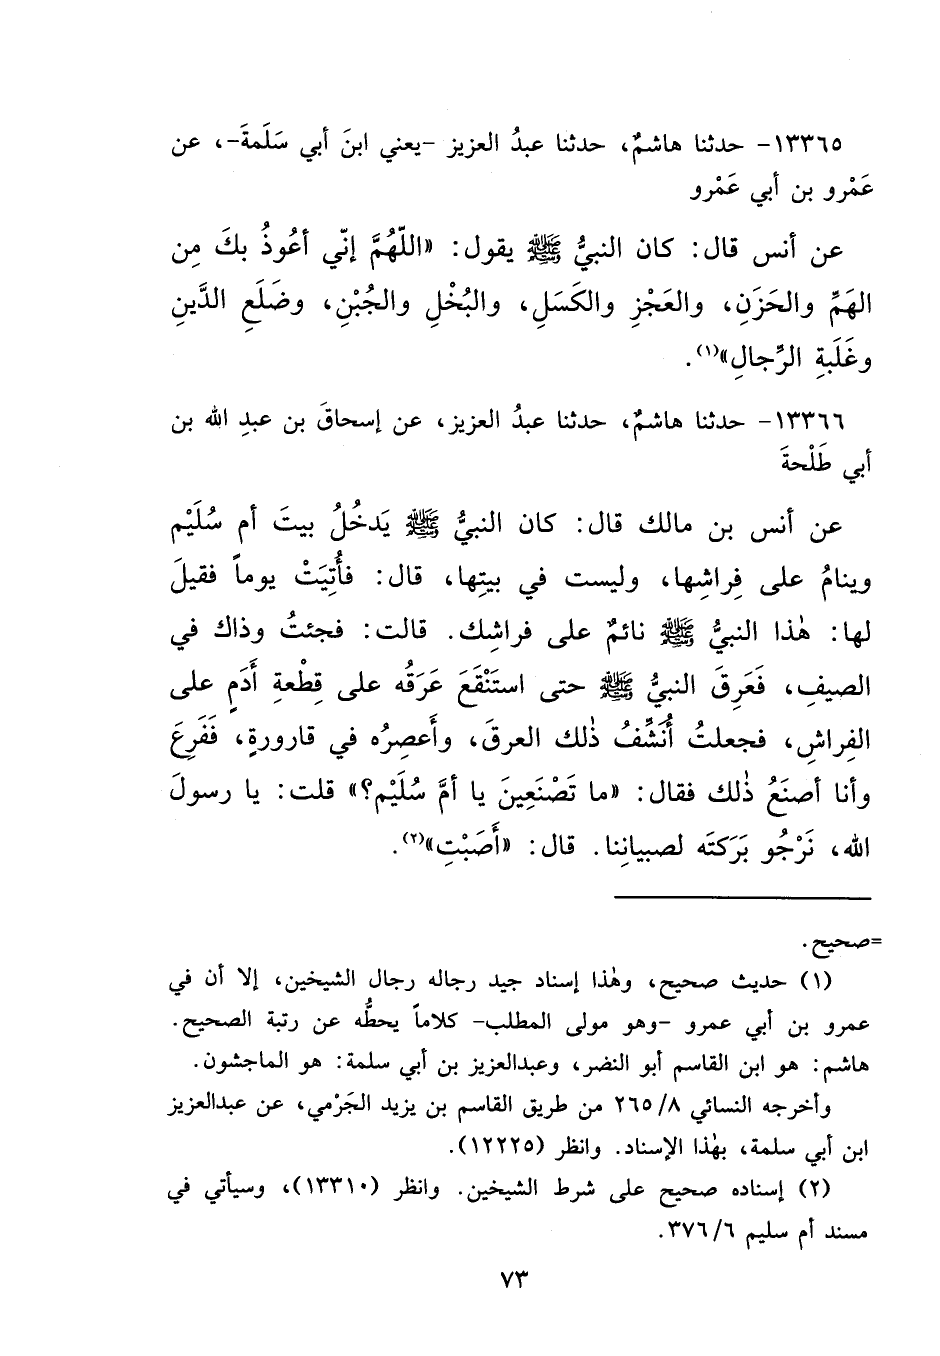 ١٣٣٦٥- حدثنا هاشمٌ، حدثنا عبدُ العزيز -يعني ابنَ أبي سَلَمةَ-، عن
عَمْرو بن أبي عَمْرو
عن أنس قال: كان النبيُّ ﷺ يقول: «اللّهُمَّ إنّي أعُوذُ بكَ مِن
الهَمِّ والحَزَنِ، والعَجْزِ والكَسَلِ، والبُخْلِ والجُبْنِ، وضَلَعِ الدَّينِ
وغَلَبةِ الرِّجالِ»(١).
١٣٣٦٦- حدثنا هاشمٌ، حدثنا عبدُ العزيز، عن إسحاقَ بن عبدِ الله بن
أبي طَلْحةَ
عن أنس بن مالك قال: كان النبيُّ ﷺ يَدخُلُ بيتَ أم سُلَيْم
وينامُ على فِراشِها، وليست في بيتِها، قال: فأُتِيَتْ يوماً فقيلَ
لها: هٰذا النبيُّ ﷺ نائمٌ على فراشِك. قالت: فجئتُ وذاك في
الصيفِ، فَعَرِقَ النبيُّ ﷺ حتى استَنْقَعَ عَرَقُه على قِطْعةِ أَدَمٍ على
الفِراشِ، فجعلتُ أُنَشِّفُ ذٰلك العرقَ، وأَعصِرُه في قارورةٍ، فَفَزِعَ
وأنا أصنَعُ ذٰلك فقال: «ما تَصْنَعِينَ يا أمَّ سُلَيْم؟» قلت: يا رسولَ
الله، نَرْجُو بَرَكتَه لصبيانِنا. قال: «أَصَبْتِ»(٢).
=صحيح.
(١) حديث صحيح، وهٰذا إسناد جيد رجاله رجال الشيخين، إلا أن في
عمرو بن أبي عمرو -وهو مولى المطلب- كلاماً يحطُّه عن رتبة الصحيح.
هاشم: هو ابن القاسم أبو النضر، وعبدالعزيز بن أبي سلمة: هو الماجشون.
وأخرجه النسائي ٢٦٥/٨ من طريق القاسم بن يزيد الجَرْمي، عن عبدالعزيز
ابن أبي سلمة، بهٰذا الإسناد. وانظر (١٢٢٢٥).
(٢) إسناده صحيح على شرط الشيخين. وانظر (١٣٣١٠)، وسيأتي في
مسند أم سليم ٣٧٦/٦.
٧٣